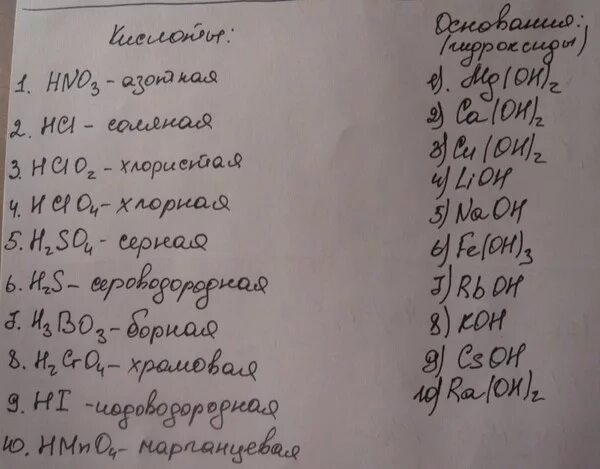 Кислоты:
1. HNO3 - азотная
2. HCl - соляная
3. HClO2 - хлористая
4. HClO4 - хлорная
5. H2SO4 - серная
6. H2S - сероводородная
7. H3BO3 - борная
8. H2CrO4 - хромовая
9. HI - иодоводородная
10. HMnO4 - марганцевая
Основания:
(гидроксиды)
1). Mg(OH)2
2) Ca(OH)2
3) Cu(OH)2
4) LiOH
5) NaOH
6) Fe(OH)3
7) RbOH
8) KOH
9) CsOH
10) Ra(OH)2